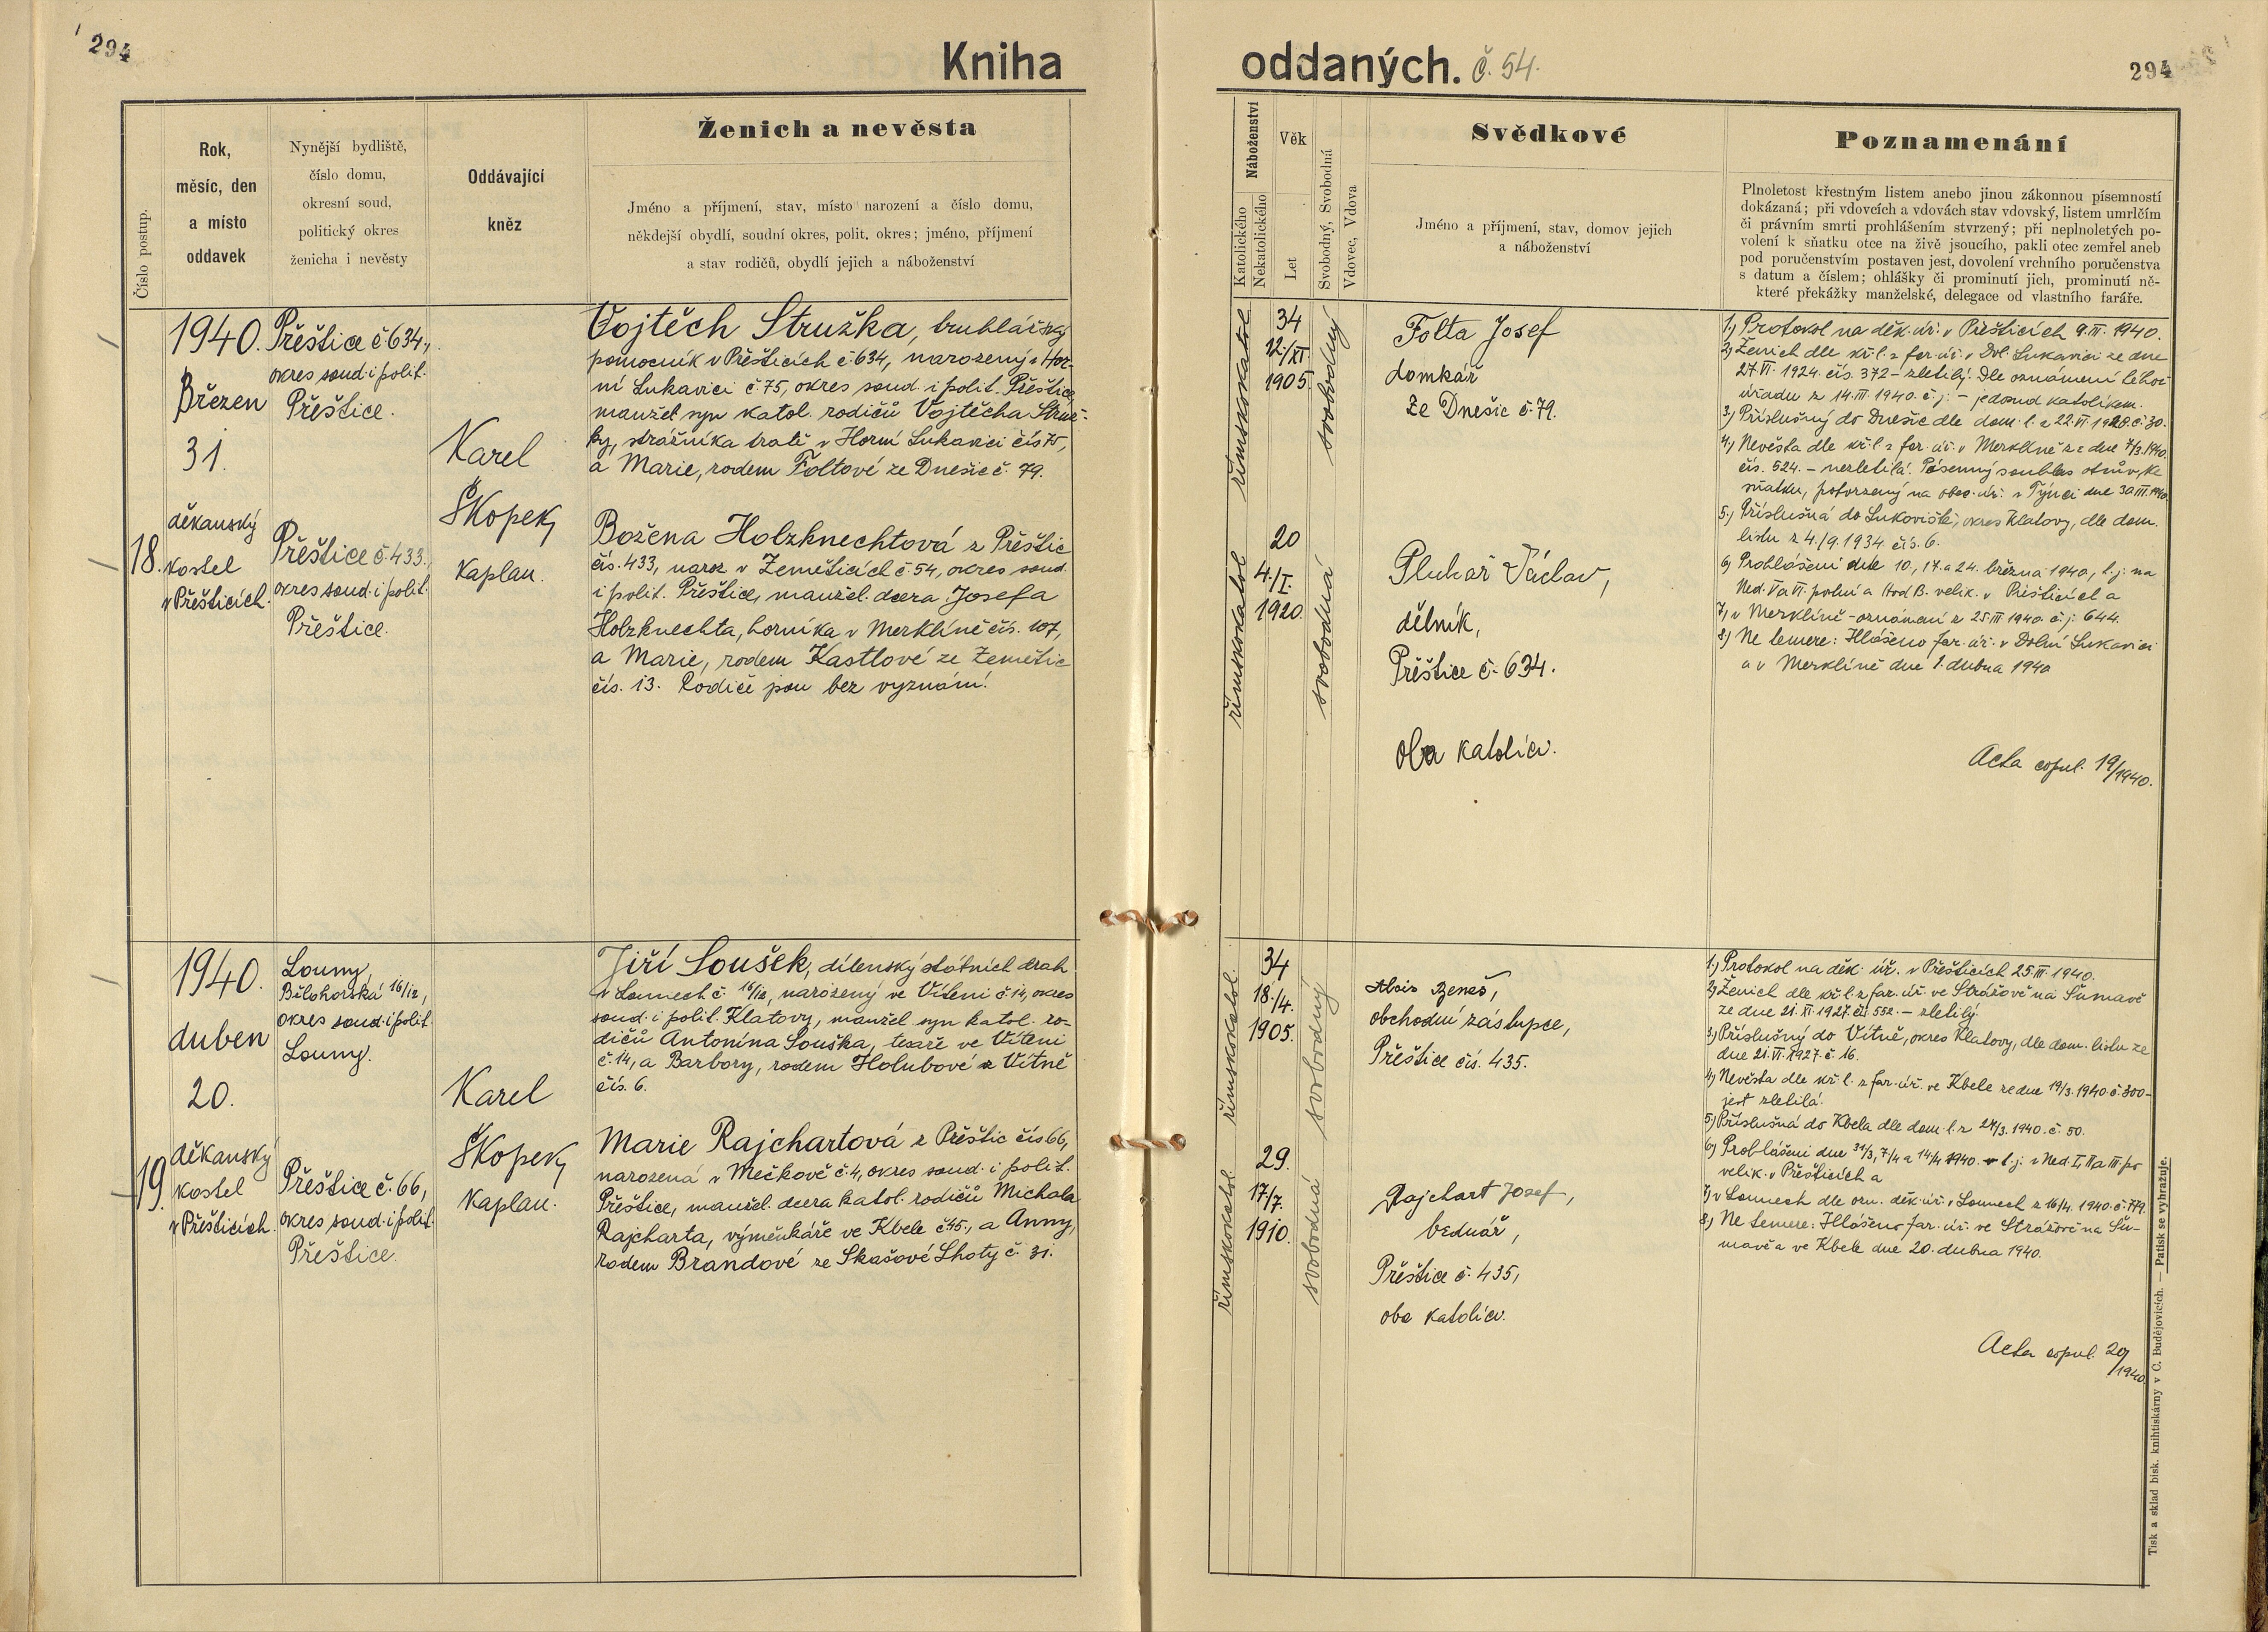 294
Kniha
oddaných. č. 54.
294
Číslo postup.
Rok,
měsíc, den
a místo
oddavek
Nynější bydliště,
číslo domu,
okresní soud,
politický okres
ženicha i nevěsty
Oddávající
kněz
Ženich a nevěsta
Jméno a příjmení, stav, místo narození a číslo domu,
někdejší obydlí, soudní okres, polit. okres; jméno, příjmení
a stav rodičů, obydlí jejich a náboženství
Náboženství
Katolického
Nekatolického
Věk
Let
Svobodný, Svobodná
Vdovec, Vdova
Svědkové
Jméno a příjmení, stav, domov jejich
a náboženství
Poznamenání
Plnoletost křestným listem anebo jinou zákonnou písemností
dokázaná; při vdovcích a vdovách stav vdovský, listem umrlčím
či právním smrti prohlášením stvrzený; při neplnoletých po-
volení k sňatku otce na živě jsoucího, pakli otec zemřel aneb
pod poručenstvím postaven jest, dovolení vrchního poručenstva
s datum a číslem; ohlášky či prominutí jich, prominutí ně-
které překážky manželské, delegace od vlastního faráře.
18.
1940.
Březen
31.
děkanský
kostel
v Přešticích.
Přeštice č. 634,
okres soud. i polit.
Přeštice.
Přeštice č. 433.
okres soud. i polit.
Přeštice.
Karel
Škopek,
kaplan.
Vojtěch Stružka, truhlářský
pomocník v Přešticích č. 634, narozený v Hor-
ní Lukavici č. 75, okres soud. i polit. Přeštice,
manžel. syn katol. rodičů Vojtěcha Struž-
ky, strážníka tratě v Horní Lukavici čís. 75,
a Marie, rodem Foltové ze Dnešic č. 79.
Božena Holzknechtová z Přeštic
čís. 433, naroz. v Zemětících č. 54, okres soud.
i polit. Přeštice, manžel. dcera Josefa
Holzknechta, horníka v Merklíně čís. 107,
a Marie, rodem Kastlové ze Zemětic
čís. 13. Rodiče jsou bez vyznání.
římskokatol.
34
12./XI.
1905.
svobodný
římskokatol.
20
4./I.
1920.
svobodná
Folta Josef
domkář
ze Dnešic č. 79.
Pluhař Václav,
dělník,
Přeštice č. 634.
Oba katolíci.
1.) Protokol na děk. úř. v Přešticích 9. III. 1940.
2.) Ženich dle kř. l. z far. úř. v Dol. Lukavici ze dne
27. VI. 1924. čís. 372 – zletilý. Dle oznámení téhož
úřadu z 14. III. 1940. č. j. – jedend katolíkem.
3.) Příslušný do Dnešic dle dom. l. z 22. VI. č. 30.
4.) Nevěsta dle kř. l. z far. úř. v Merklíně ze dne 7/3. 1940.
čís. 524. – nezletilá. Písemný souhlas otcův ke
sňatku, potvrzený na obec. úř. v Týnci dne 30. III. 1940.
5.) Příslušná do Lukoviště, okres Klatovy, dle dom.
listu z 4./9. 1934. čís. 6.
6.) Prohlášeni dne 10., 17. a 24. března 1940, t. j. na
Ned. V. a VI. postní a Hod B. velik. v Přešticích a
7.) v Merklíně – oznámení z 25. III. 1940. č. j. 644.
8.) Ne temere: Hlášeno far. úř. v Dolní Lukavici
a v Merklíně dne 1. dubna 1940
Acta copul. 19/1940.
19.
1940.
duben
20.
děkanský
kostel
v Přešticích.
Louny,
Bělohorská 16/12,
okres soud. i polit.
Louny.
Přeštice č. 66,
okres soud. i polit.
Přeštice.
Karel
Škopek,
kaplan.
Jiří Soušek, dílenský státních drah
v Lounech č. 16/12, narozený ve Víteni č. 14, okres
soud. i polit. Klatovy, manžel. syn katol. ro-
dičů Antonína Souška, tesaře ve Víteni
č. 14, a Barbory, rodem Holubové z Vítně
čís. 6.
Marie Rajchartová z Přeštic čís. 66,
narozená v Mečkově č. 4, okres soud. i polit.
Přeštice, manžel. dcera katol. rodičů Michala
Rajcharta, výměnkáře ve Kbele č. 45, a Anny,
rodem Brandové ze Skašové Lhoty č. 31.
římskokatol.
34
18./4.
1905.
svobodný
římskokatol.
29.
17/7.
1910.
svobodná
Alois Beneš,
obchodní zástupce,
Přeštice čís. 435.
Rajchart Josef,
bednář,
Přeštice č. 435,
oba katolíci.
1.) Protokol na děk. úř. v Přešticích 25. III. 1940.
2.) Ženich dle kř. l. z far. úř. ve Strážově na Šumavě
ze dne 21. XI. 1927. čís. 552. – zletilý.
3.) Příslušný do Vítně, okres Klatovy, dle dom. listu ze
dne 21. VI. 1927. č. 16.
4.) Nevěsta dle kř. l. z far. úř. ve Kbele ze dne 19/3. 1940. č. 300 –
jest zletilá.
5.) Příslušná do Kbela dle dom. l. z 24/3. 1940. č. 50.
6.) Prohlášeni dne 31/3, 7/4 a 14/4 1940. t. j. v Ned. I, II a III po
velik. v Přešticích a
7.) v Lounech dle ozn. děk. úř. v Lounech z 16/4. 1940. č. 779.
8.) Ne temere: Hlášeno far. úř. ve Strážově na Šu-
mavě a ve Kbele dne 20. dubna 1940.
Acta copul. 20/1940.
Tisk a sklad bisk. knihtiskárny v Č. Budějovicích. — Patisk se vyhražuje.